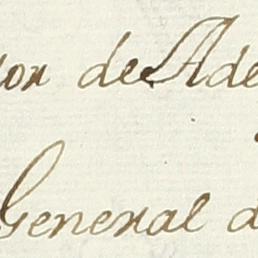 on de Ade
General d